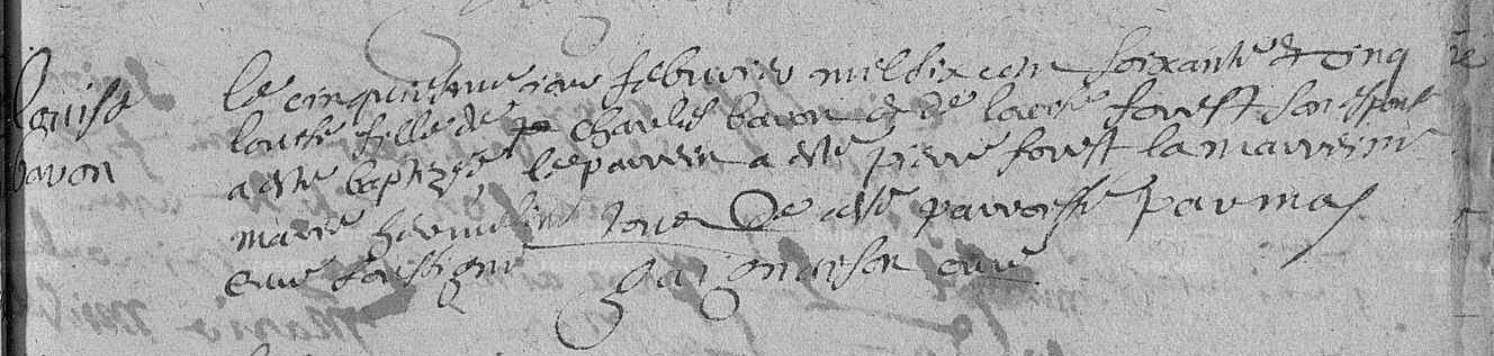 Louise
baron
le cinquiesme iour febvrier mil six cens soixante et cinq
louise fille de charles baron et de louise forest son espouse
a este baptizée le parrein a esté pierre forest la marreine
marie tous de ceste parroisse par moy
curé soussigné curé